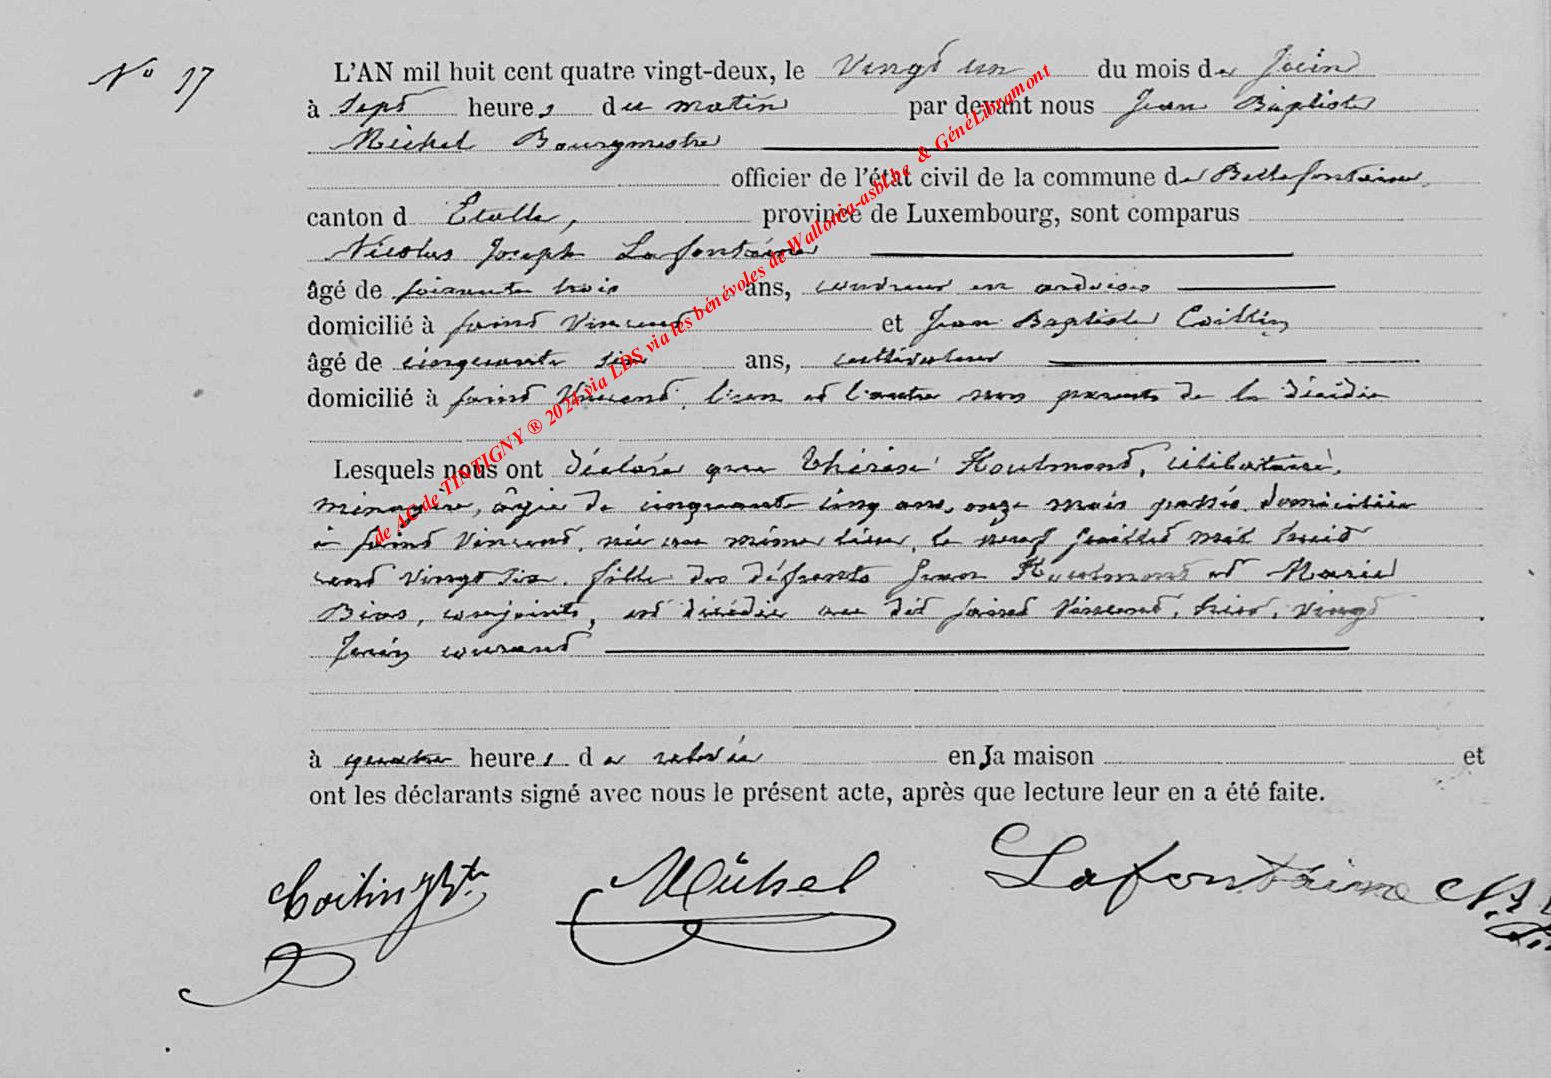 N° 17
L'AN mil huit cent quatre vingt-deux, le Vingt un du mois de Juin
à Sept heures du matin par devant nous Jean Baptiste
Michel Bourgmestre
officier de l'état civil de la commune de Bellefontaine,
canton d Etalle, province de Luxembourg, sont comparus
Nicolas Joseph Lafontaine
âgé de soixante trois ans, couvreur en ardoises
domicilié à Saint Vincent et Jean Baptiste Coillin
âgé de cinquante six ans, cultivateur
domicilié à Saint Vincent, l'un et l'autre non parents de la décédée
Lesquels nous ont déclaré que Thérèse Houlmont, célibataire,
ménagère, âgée de cinquante cinq ans, onze mois passés, domiciliée
à Saint Vincent, née au même lieu, le neuf juillet mil huit
cent vingt six, fille des défunts Jean Houlmont et Marie
conjoints, est décédée au dit Saint Vincent, hier, vingt
Juin courant
à quatre heures de relevée en sa maison et
ont les déclarants signé avec nous le présent acte, après que lecture leur en a été faite.
Coilin JBte Michel Lafontaine N.J
de AC de TINTIGNY ® 2024 via LDS via les bénévoles de Wallonia-asbl.be & GénéLibramont